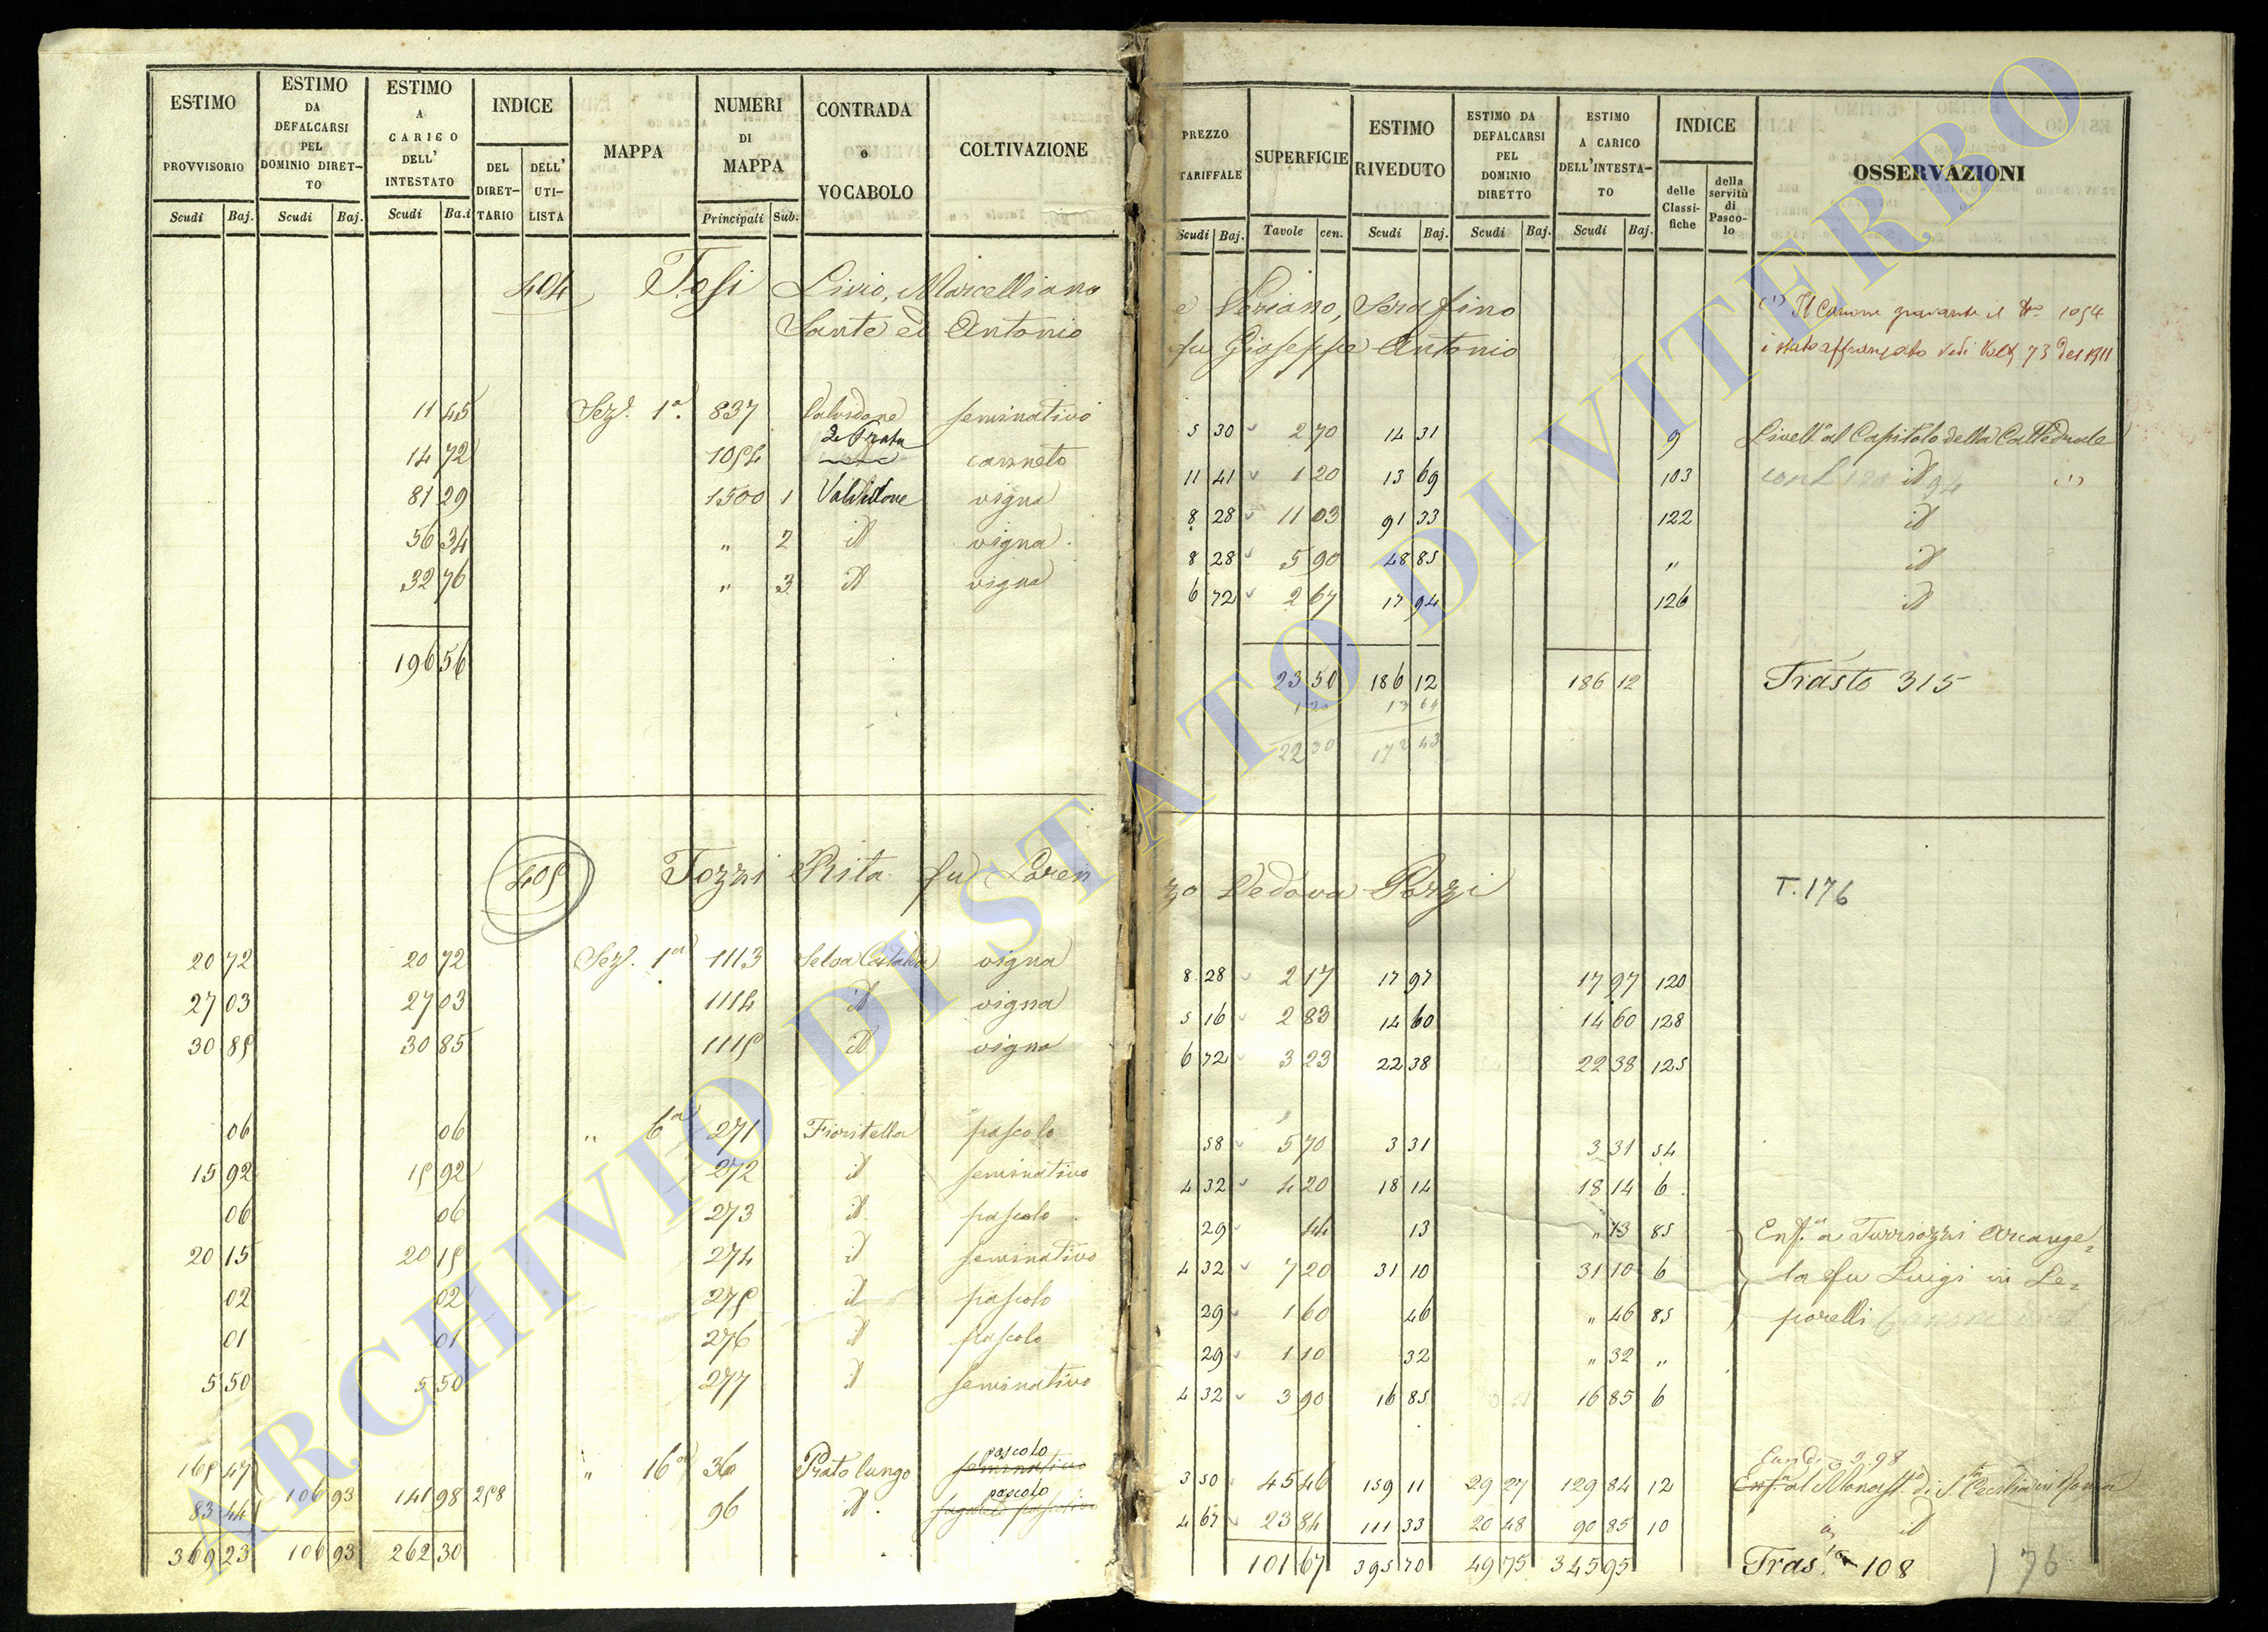 ESTIMO PROVVISORIO Scudi Baj.
ESTIMO DA DEFALCARSI PEL DOMINIO DIRETTO Scudi Baj.
ESTIMO A CARICO DELL' INTESTATO Scudi Ba.i
INDICE DEL DIRETTARIO DELL' UTILISTA
MAPPA
NUMERI DI MAPPA Principali Sub.
CONTRADA o VOCABOLO
COLTIVAZIONE
PREZZO TARIFFALE Scudi Baj.
SUPERFICIE Tavole cen.
ESTIMO RIVEDUTO Scudi Baj.
ESTIMO DA DEFALCARSI PEL DOMINIO DIRETTO Scudi Baj.
ESTIMO A CARICO DELL'INTESTATO Scudi Baj.
INDICE delle Classifiche della servitù di Pascolo
OSSERVAZIONI
404 Tosi Livio, Marcelliano e Veriano, Serafino
Sante ed Antonio fu Giuseppe Antonio
(1) Il Canone gravante il No 1054
è stato affrancato Vedi Volt. 73 del 1911
11 45 Sez. 1a. 837 Valvidone seminativo 5 30 2 70 14 31 9 Livell. al Capitolo della Cattedrale
14 72 1054 canneto 11 41 1 20 13 69 103 id (1)
81 29 1500 1 Valvidone vigna 8 28 11 03 91 33 122 id
56 34 " 2 id vigna 8 28 5 90 48 85 " id
32 76 " 3 id vigna 6 72 2 67 17 94 126 id
196 56 23 50 186 12 186 12 Trasto 315
1 20 13 69
22 30 172 43
405 Tozzi Rita fu Lorenzo Vedova Pozzi T. 176
20 72 20 72 Sez. 1a 1113 Selva vigna 8 28 2 17 17 97 17 97 120
27 03 27 03 1114 id vigna 5 16 2 83 14 60 14 60 128
30 85 30 85 1115 id vigna 6 72 3 23 22 38 22 38 125
06 06 " 6a 271 Fioritella pascolo 58 5 70 3 31 3 31 54
15 92 15 92 272 id seminativo 4 32 4 20 18 14 18 14 6
06 06 273 id pascolo 29 44 13 " 13 85 Enf.a a Turriozzi Arcange=
20 15 20 15 274 id seminativo 4 32 7 20 31 10 31 10 6 la fu Luigi in Le=
02 02 275 id pascolo 29 1 60 46 " 46 85 porelli
01 01 276 id pascolo 29 1 10 32 " 32 "
5 50 5 50 277 id seminativo 4 32 3 90 16 85 16 85 6
165 47 " 16a 36 Prato lungo seminativo pascolo 3 50 45 46 159 11 29 27 129 84 12 Enf.a al Monast.o di S.ta Cecilia in Roma
83 44 106 93 141 98 258 96 id. pascolo 4 67 23 84 111 33 20 48 90 85 10 id
369 23 106 93 262 30 101 67 395 70 49 75 345 95 Tras.to 108 176
ARCHIVIO DI STATO DI VITERBO